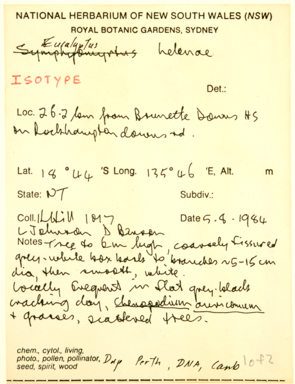 NATIONAL HERBARIUM OF NEW SOUTH WALES (NSW)
ROYAL BOTANIC GARDENS, SYDNEY
Eucalyptus
Symphyomyrtus helenae
ISOTYPE
Det.:
Loc. 26.2 km from Brunette Downs HS
on Rockhampton downs rd.
Lat. 18° 44 'S Long. 135° 46 'E, Alt. m
State: NT Subdiv.:
Coll. K Hill 1017 Date 5-8-1984
L Johnson D Benson
Notes Tree to 6m high, coarsely fissured
grey-white box bark to branches ~5-15 cm
dia, then smooth, white.
Locally frequent in flat grey-black
cracking clay, Chenopodium auricomum
+ grasses, scattered trees.
chem., cytol., living,
photo., pollen, pollinator,
seed, spirit, wood
Dup Perth, DNA, Canb
1 of 2